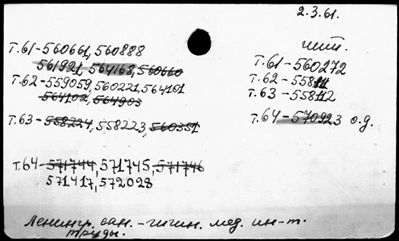 2.3.61.
т.61-560661,560888
561921, 564163, 560660
т.62-559059,560221,564101
564102, 564903
т.63-558224,558223,560351
т.64-571744,571745,571746
571417,572028
шт.
т.61-560272
т.62-558111
т.63-558112
т.64-570923 о.д.
Ленингр. сан.-гигин. мед. ин-т.
Труды.